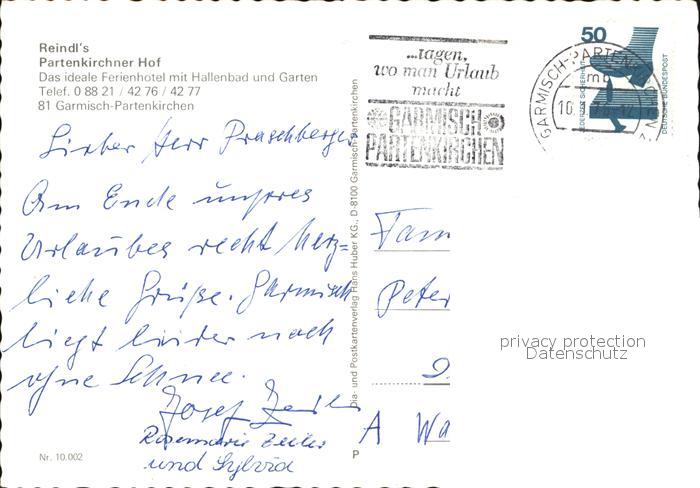 Reindl's
Partenkirchner Hof
Das ideale Ferienhotel mit Hallenbad und Garten
Telef. 0 88 21 / 42 76 / 42 77
81 Garmisch-Partenkirchen
Lieber Herr Praschberger
Am Ende unseres
Urlaubes recht herz=
liche Grüße. Garmisch
liegt leider noch
ohne Schnee.
Josef Zeiler
Rosemarie Zeiler
und Sylvia
Nr. 10.002
Dia- und Postkartenverlag Hans Huber KG., D-8100 Garmisch-Partenkirchen
...tagen,
wo man Urlaub
macht
GARMISCH
PARTENKIRCHEN
GARMISCH-PARTENKIRCHEN
mb
50
JEDERZEIT SICHERHEIT
DEUTSCHE BUNDESPOST
Fam
Peter
A Wa
P
privacy protection
Datenschutz